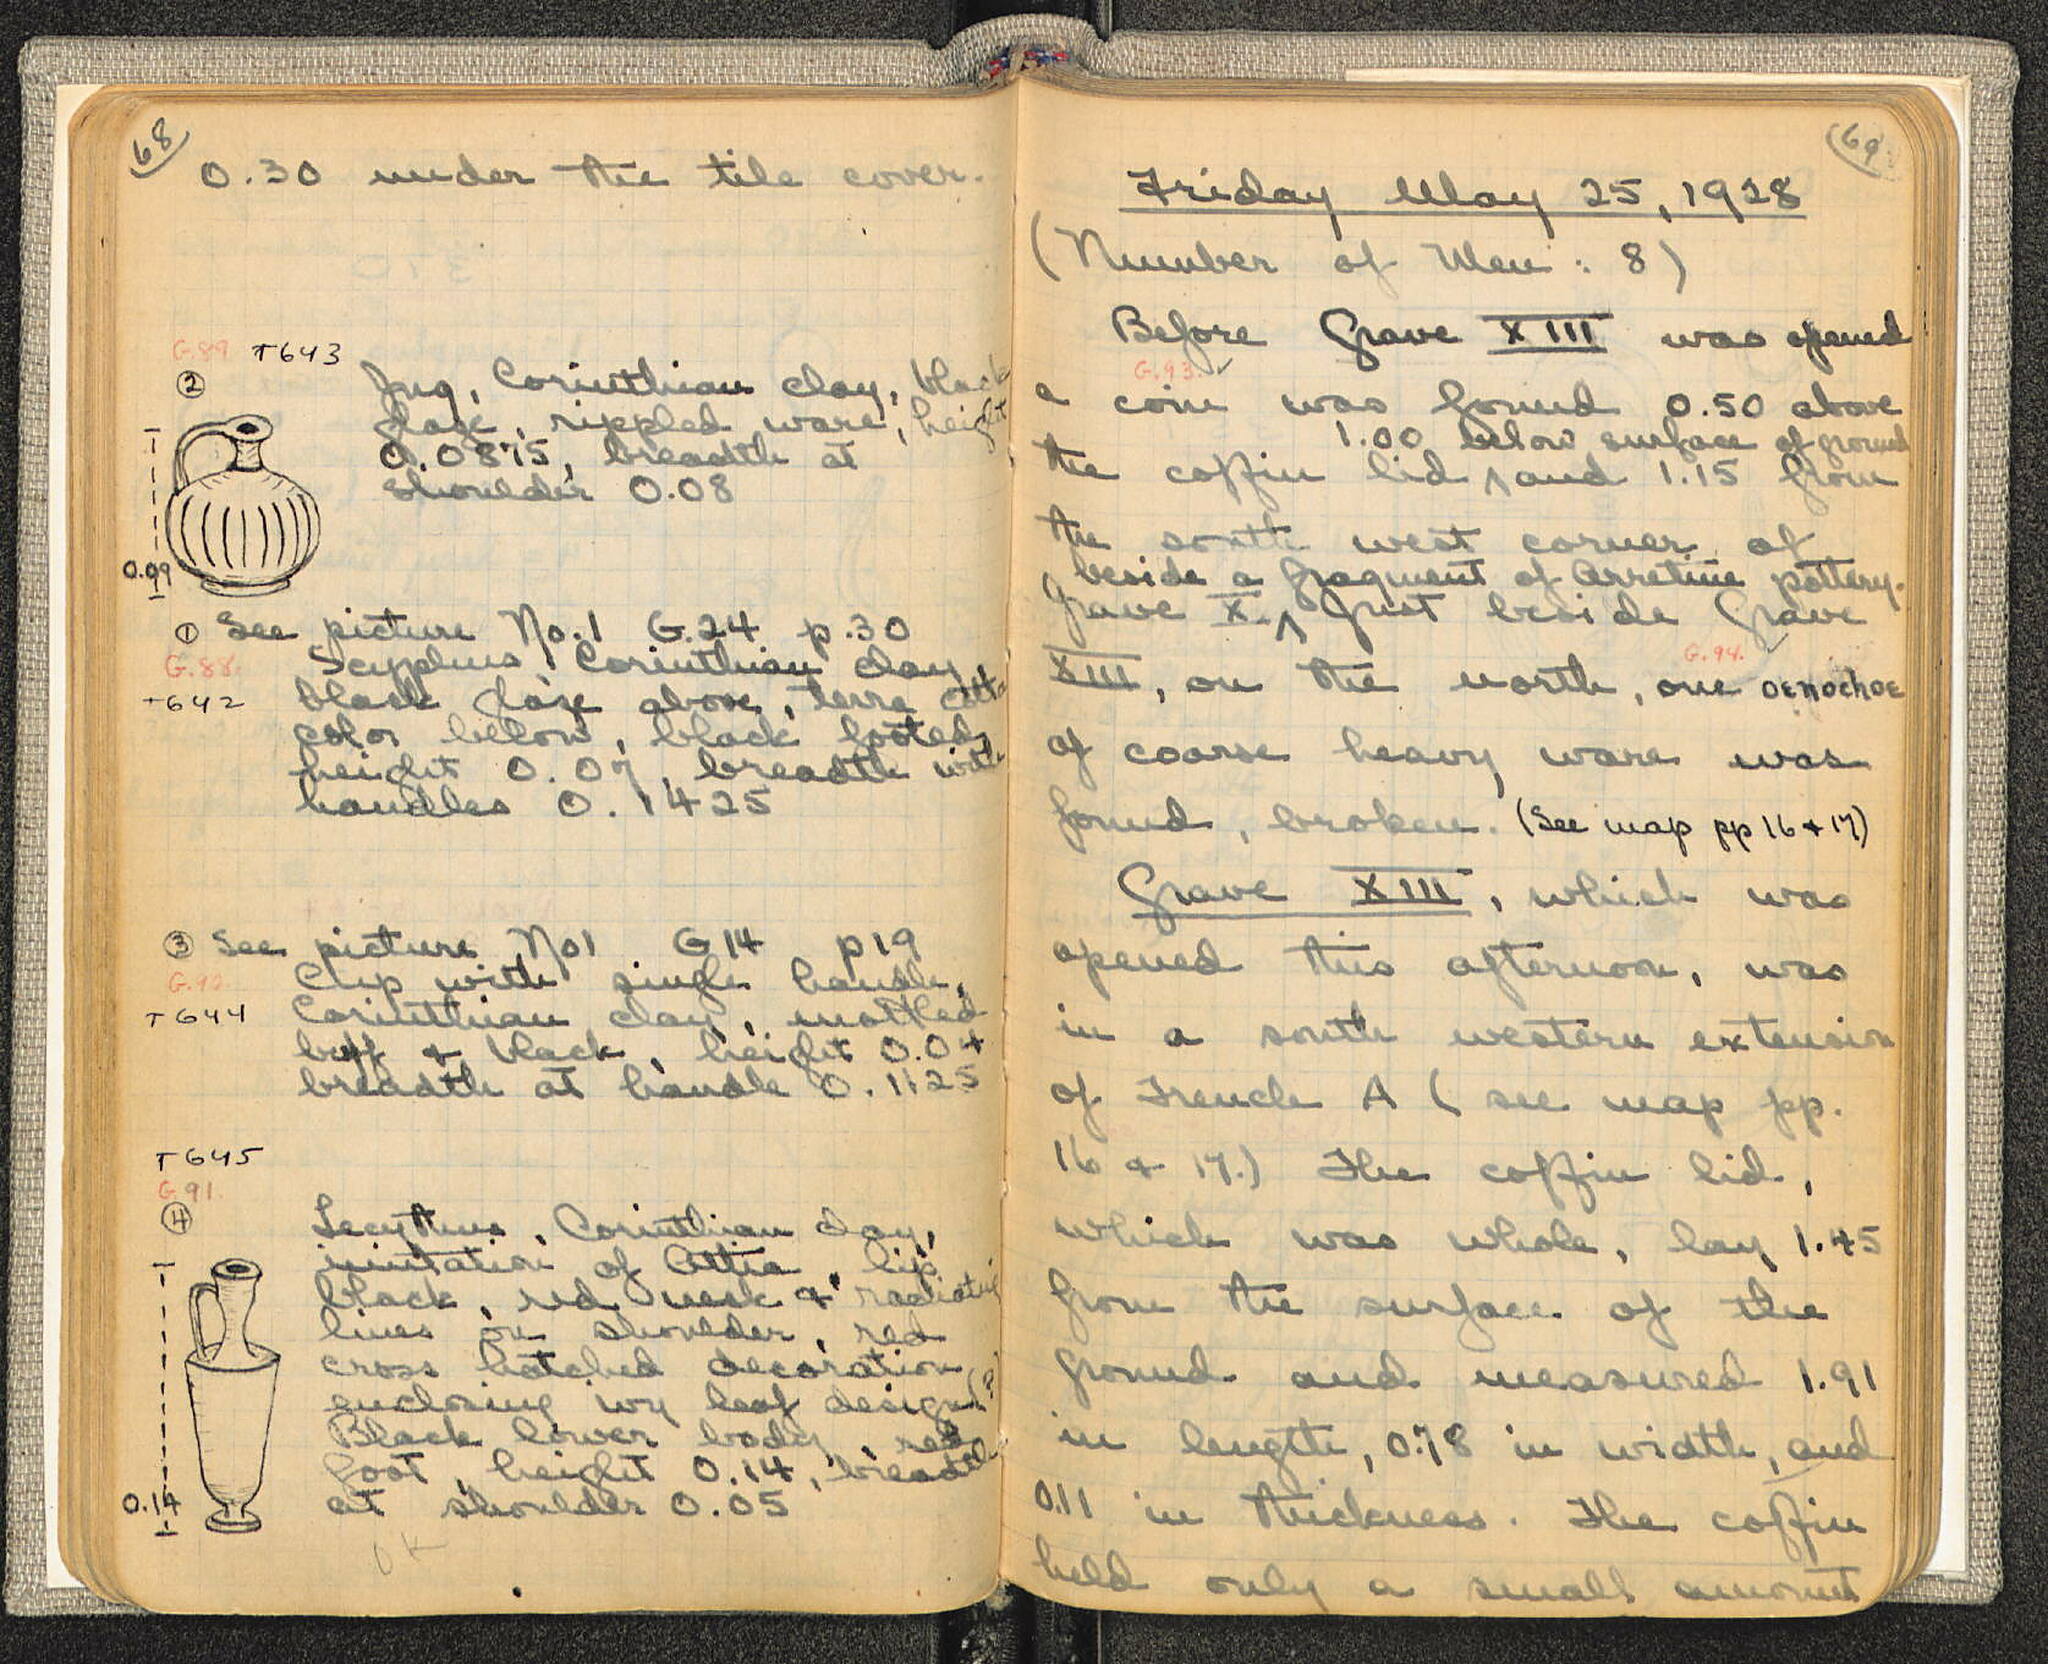 68
0.30 under the tile cover.
G.89 T643
② Jug, Corinthian clay, black
glaze, rippled ware, height
0.0875, breadth at
shoulder 0.08
0.09
① See picture No.1 G.24 p.30
G.88. Scyphus, Corinthian clay,
T642 black glaze above, terra cotta
color below, black footed,
height 0.07, breadth with
handles 0.1425
③ See picture No1 G14 p19
G.90. Cup with single handle,
T644 Corinthian clay, mottled
buff & black, height 0.04
breadth at handle 0.1125
T645
G.91.
④ Lecythus, Corinthian clay,
imitation of Attic, lip
black, red neck & radiating
lines on shoulder, red
cross hatched decoration
enclosing ivy leaf design (?)
Black lower body, red
foot, height 0.14, breadth
at shoulder 0.05
0.14
OK
69
Friday May 25, 1928
(Number of Men : 8)
Before Grave XIII was opened
G.93. ✓
a coin was found 0.50 above
1.00 below surface of ground
the coffin lid ^ and 1.15 from
the south west corner of
beside a fragment of Arretine pottery.
Grave X. ^ Just beside Grave
G.94. ✓
XIII, on the north, one oenochoe
of coarse heavy ware was
found, broken. (See map pp 16 & 17)
Grave XIII, which was
opened this afternoon, was
in a south western extension
of Trench A (see map pp.
16 & 17.) The coffin lid,
which was whole, lay 1.45
from the surface of the
ground and measured 1.91
in length, 0.78 in width, and
0.11 in thickness. The coffin
held only a small amount